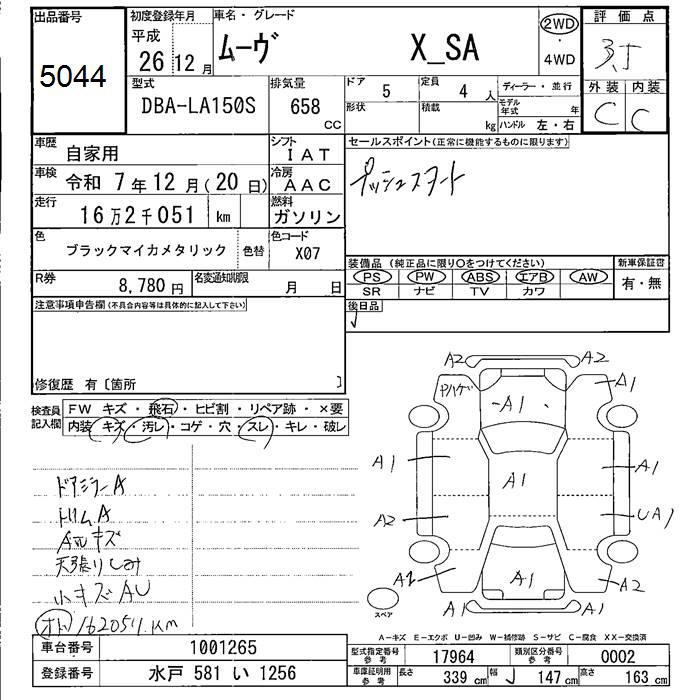 出品番号
5044
初度登録年月
平成
26年12月
車名・グレード
ムーヴ X_SA
2WD
・
4WD
評価点
3.5
外装 内装
C C
型式
DBA-LA150S
排気量
658
CC
ドア 5
定員 4人
形状
積載 kg
ディーラー・並行
モデル年式 年
ハンドル 左・右
車歴 自家用
シフト
IAT
車検 令和 7年12月(20日)
冷房
AAC
走行 16万2千051 km
燃料
ガソリン
色 ブラックマイカメタリック 色替
色コード
X07
R券 8,780円
名変通知期限 月 日
セールスポイント(正常に機能するものに限ります)
プッシュスタート
装備品 (純正品に限り〇をつけてください)
PS PW ABS エアB AW
SR ナビ TV カワ
新車保証書
有・無
後日品
注意事項申告欄(不具合内容等は具体的に記入して下さい)
修復歴 有〔箇所 〕
検査員
記入欄
FW キズ・飛石・ヒビ割・リペア跡・×要
内装 キズ・汚レ・コゲ・穴・スレ・キレ・破レ
ドアミラーA
トリムA
天張りしみ
小キズAU
162051km
A2 A2
ヤハゲ A1 A1
A1 A1 A1
A2 UA1
A2 A1 A2
A1 A1
スペア
A-キズ E-エクボ U-凹み W-補修跡 S-サビ C-腐食 XX-交換済
車台番号 1001265
登録番号 水戸 581 い 1256
型式指定番号
参考
17964
類別区分番号
参考
0002
車庫証明用
参考
長さ 339cm 幅 147cm 高さ 163cm